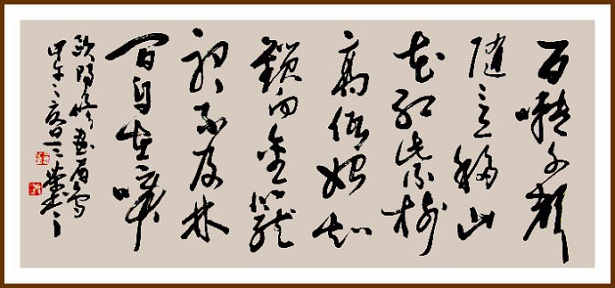 百囀千聲
隨意移山
花紅紫樹
高低始知
鎖向金籠
聽不及林
間自在啼
歐陽修畫眉鳥
甲午之